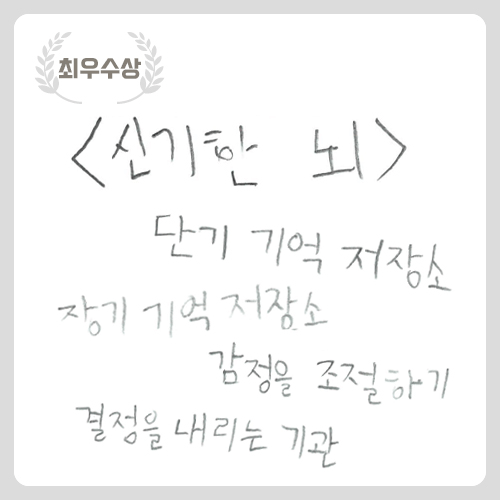 최우수상
<신기한 뇌>
단기 기억 저장소
장기 기억 저장소
감정을 조절하기
결정을 내리는 기관